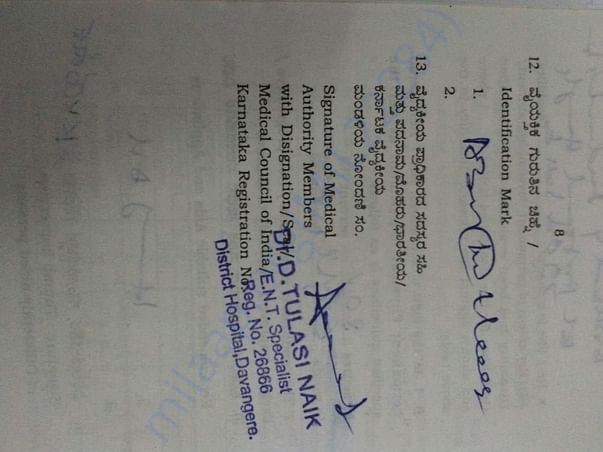 8
12. ವೈಯಕ್ತಿಕ ಗುರುತಿನ ಚಿಹ್ನೆ /
Identification Mark
1.
2.
13. ವೈದ್ಯಕೀಯ ಪ್ರಾಧಿಕಾರದ ಸದಸ್ಯರ ಸಹಿ
ಮತ್ತು ಪದನಾಮ/ಮೊಹರು/ಭಾರತೀಯ/
ಕರ್ನಾಟಕ ವೈದ್ಯಕೀಯ
ಮಂಡಳಿಯ ನೋಂದಣಿ ಸಂ.
Signature of Medical
Authority Members
with Disignation/Seal/
Medical Council of India/
Karnataka Registration No.
Dr.D.TULASI NAIK
E.N.T. Specialist
Reg. No. 26866
District Hospital,Davangere.